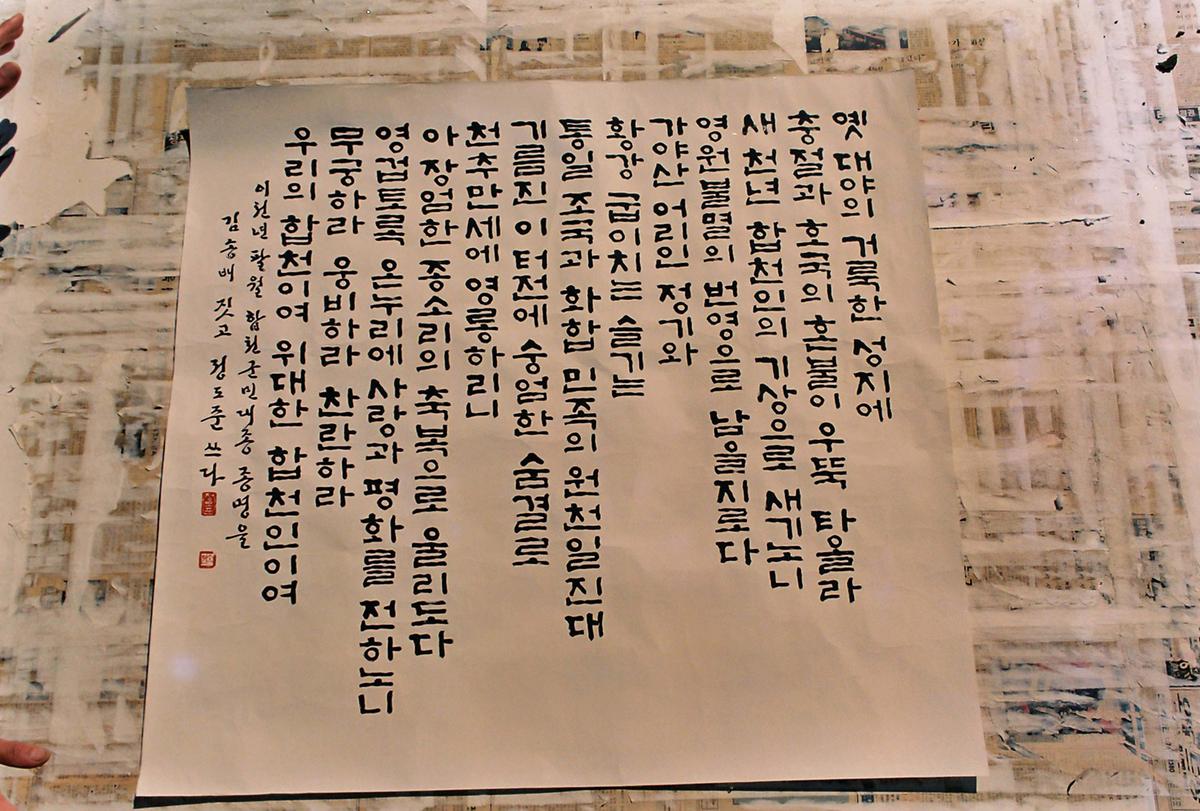 옛 대야의 거룩한 성지에
충절과 호국의 혼불이 우뚝 타올라
새 천년 합천인의 기상으로 새기노니
영원불멸의 번영으로 남을지로다
가야산 어린 정기와
황강 굽이치는 슬기는
통일 조국과 화합 민족의 원천일진대
기름진 이 터전에 숭엄한 숨결로
천추만세에 영롱하리니
아 장엄한 종소리의 축복으로 울리도다
영검토록 온누리에 사랑과 평화를 전하노니
무궁하라 웅비하라 찬란하라
우리의 합천이여 위대한 합천인이여
이천년 팔월 합천군민대종 종명을
김송배 짓고 정도준 쓰다